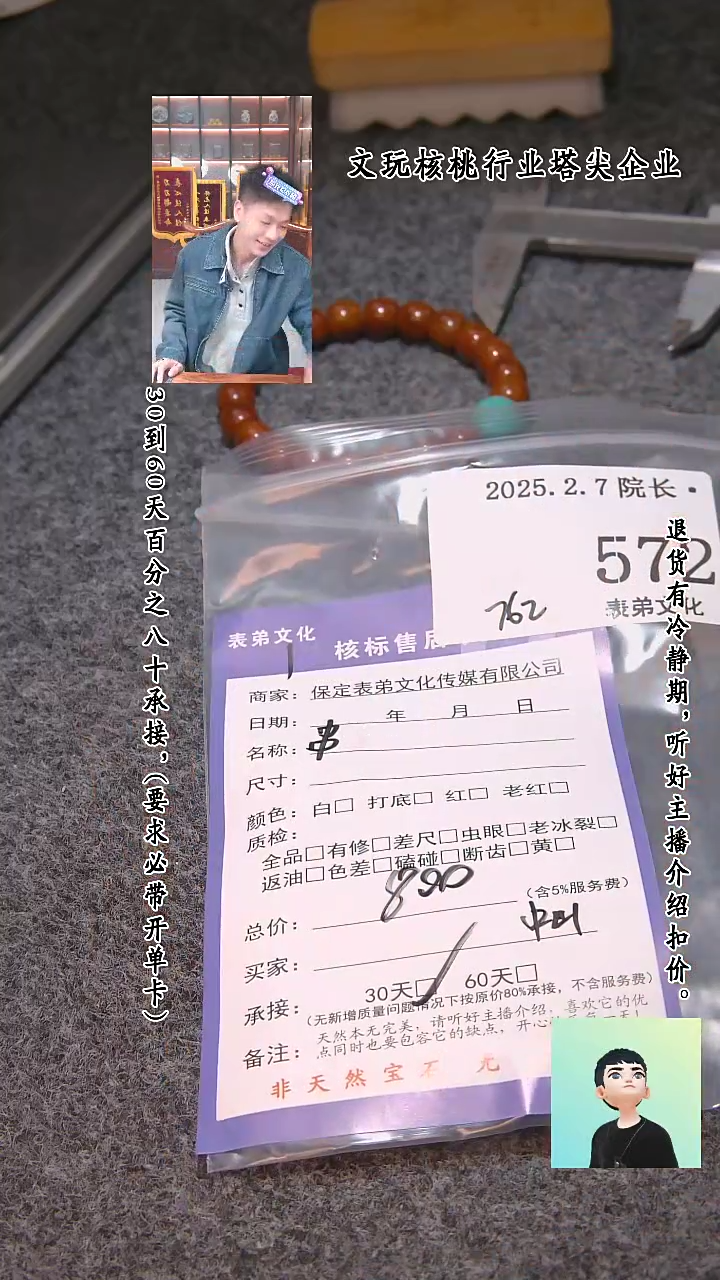 文玩核桃行业塔尖企业
30到60天百分之八十承接，（要求必带开单卡）
退货有冷静期，听好主播介绍扣价。
2025.2.7 院长·
572
762
表弟文化
表弟文化
核标售后
商家：保定表弟文化传媒有限公司
日期： 年 月 日
名称：串
尺寸：
颜色：白□ 打底□ 红□ 老红□
质检：
全品□有修□差尺□虫眼□老冰裂□
返油□色差□磕碰□断齿□黄□
总价：890（含5%服务费）
买家：
承接：30天□ 60天□
（无新增质量问题情况下按原价80%承接，不含服务费）
备注：天然本无完美，请听好主播介绍，喜欢它的优
点同时也要包容它的缺点，开心
非天然宝石 无